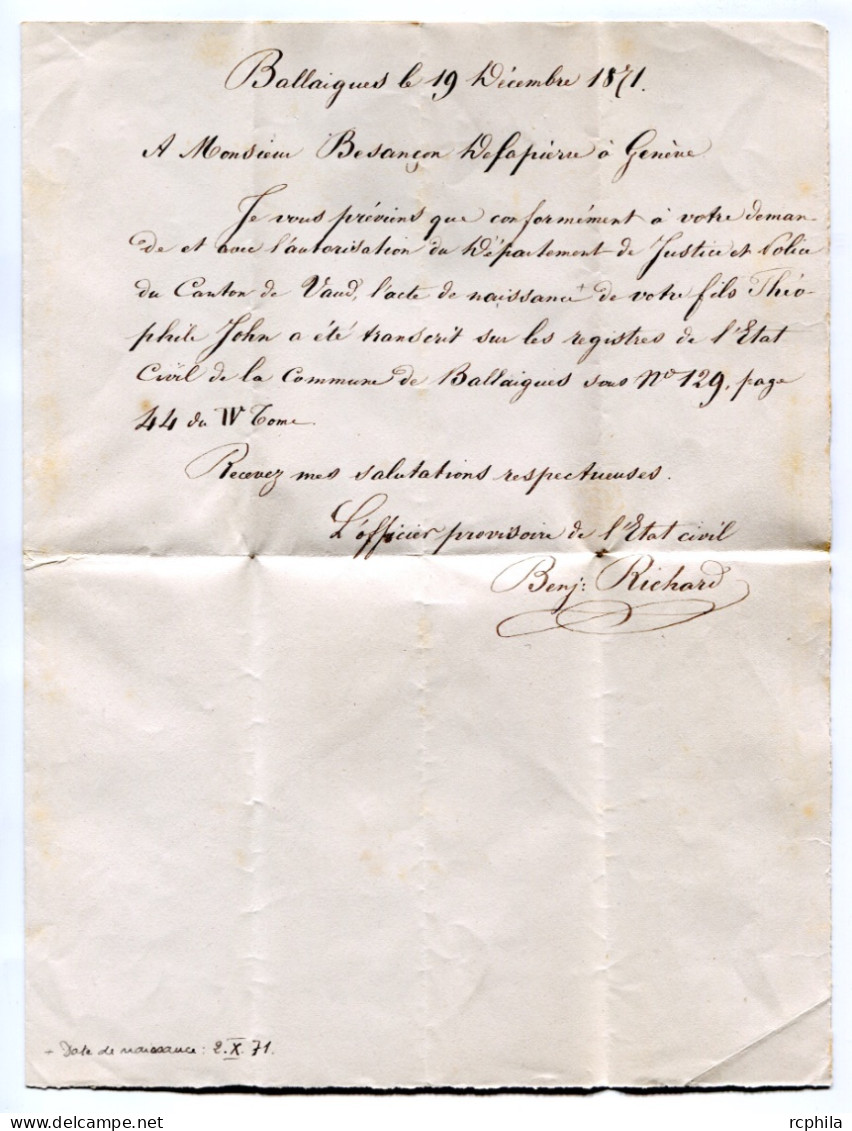 Ballaigues le 19 Décembre 1871.
A Monsieur Besançon Delapierre à Genève
Je vous préviens que conformément à votre deman-
de et avec l'autorisation du Département de Justice et Police
du Canton de Vaud, l'acte de naissance + de votre fils Théo-
phile John a été transcrit sur les registres de l'Etat
Civil de la Commune de Ballaigues sous No 129, page
44 du IV Tome.
Recevez mes salutations respectueuses.
L'officier provisoire de l'Etat civil
Benj: Richard
+ Date de naissance: 2.X.71.
rcphila